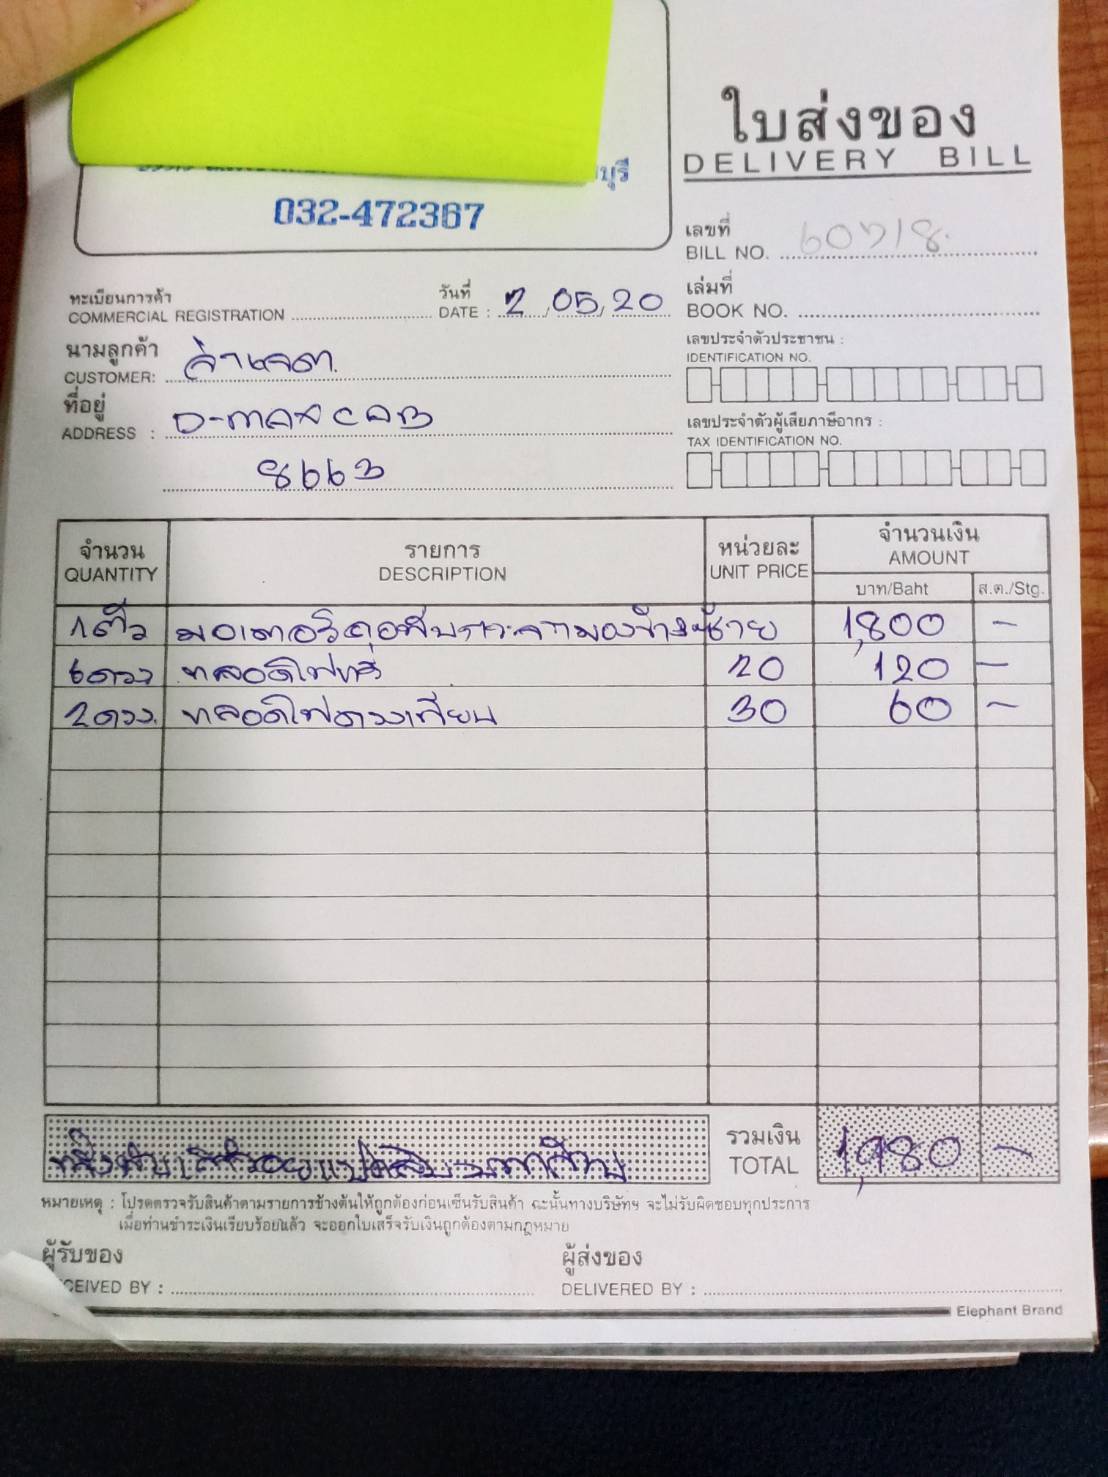 บุรี
032-472367
ใบส่งของ
DELIVERY BILL
เลขที่
BILL NO. 60718
ทะเบียนการค้า
COMMERCIAL REGISTRATION
วันที่
DATE : 2 / 05 / 20
เล่มที่
BOOK NO.
นามลูกค้า
CUSTOMER:
เลขประจำตัวประชาชน :
IDENTIFICATION NO.
ที่อยู่
ADDRESS : D-max CAB
8663
เลขประจำตัวผู้เสียภาษีอากร :
TAX IDENTIFICATION NO.
จำนวน รายการ หน่วยละ จำนวนเงิน
QUANTITY DESCRIPTION UNIT PRICE AMOUNT
บาท/Baht ส.ต./Stg.
1 ตัว มอเตอร์ มองข้าง ซ้าย 1,800 -
6 ดวง หลอดไฟหรี่ 20 120 -
2 ดวง หลอดไฟดวงเทียน 30 60 -
รวมเงิน
TOTAL 1,980 -
หมายเหตุ : โปรดตรวจรับสินค้าตามรายการข้างต้นให้ถูกต้องก่อนเซ็นรับสินค้า ฉะนั้นทางบริษัทฯ จะไม่รับผิดชอบทุกประการ
เมื่อท่านชำระเงินเรียบร้อยแล้ว จะออกใบเสร็จรับเงินถูกต้องตามกฎหมาย
ผู้รับของ
CEIVED BY :
ผู้ส่งของ
DELIVERED BY :
Elephant Brand